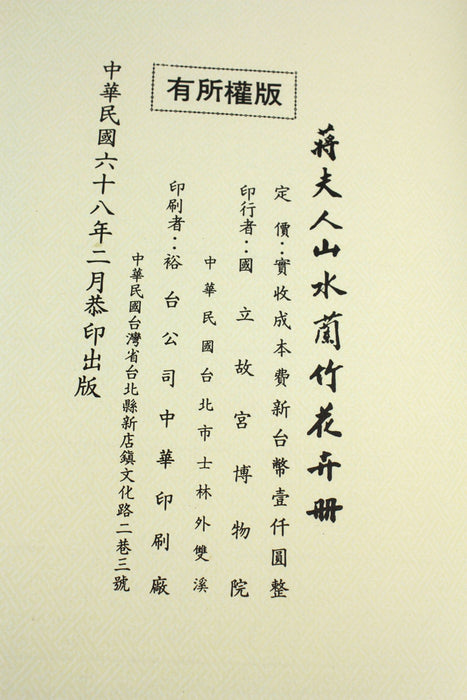 版權所有
蔣夫人山水蘭竹花卉冊
定價：實收成本費新台幣壹仟圓整
印行者：國立故宮博物院
中華民國台北市士林外雙溪
印刷者：裕台公司中華印刷廠
中華民國台灣省台北縣新店鎮文化路二巷三號
中華民國六十八年二月恭印出版